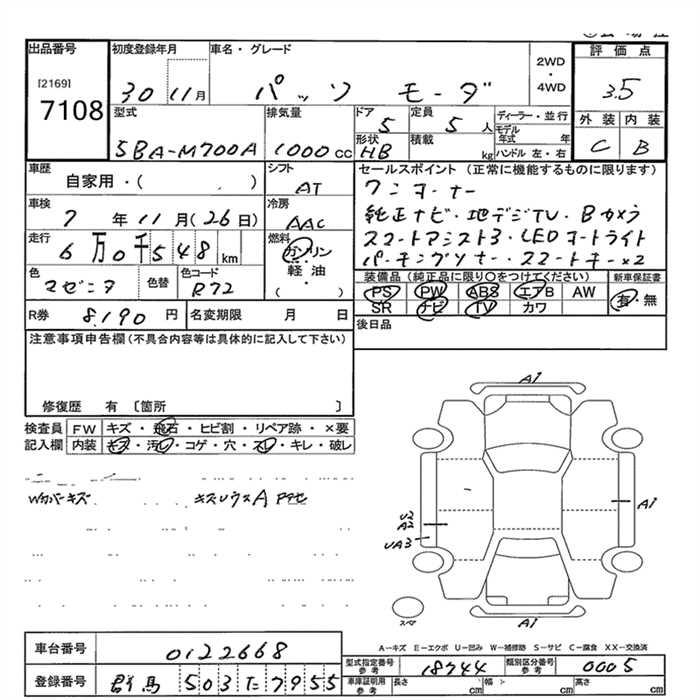 出品番号
[2169]
7108
初度登録年月
30 11月
車名・グレード
パッソ モーダ
2WD
・
4WD
評価点
3.5
外装 内装
C B
型式
5BA-M700A
排気量
1000 CC
ドア
5
定員
5 人
形状
HB
積載
kg
ディーラー・並行
モデル年式 年
ハンドル 左・右
車歴
自家用・( )
シフト
AT
車検
7 年 11 月 (26日)
冷房
AAC
走行
6万0千548 km
燃料
ガソリン
軽油
( )
色
マゼンタ
色替
色コード
R72
R券
8,190 円
名変期限 月 日
セールスポイント (正常に機能するものに限ります)
ワンオーナー
純正ナビ・地デジTV・Bカメラ
スマートアシスト3・LEDオートライト
パーキングソナー・スマートキー×2
装備品(純品に限り○をつけてください)
新車保証書
PS PW ABS エアB AW
有・無
SR ナビ TV カワ
後日品
注意事項申告欄(不具合内容等は具体的に記入して下さい)
修復歴 有〔箇所 〕
検査員記入欄
FW キズ・飛石・ヒビ割・リペア跡・×要
内装 キズ・汚レ・コゲ・穴・スレ・キレ・破レ
Wカバーキズ
キズウスA
A1
A1
U2
A2
UA3
A1
スペア
A-キズ E-エクボ U-凹み W-補修跡 S-サビ C-腐食 XX-交換済
車台番号
0122668
登録番号
群馬 503 た 7955
型式指定番号
参考
18744
類別区分番号
参考
0005
車庫証明用
参考
長さ cm
幅 cm
高さ cm